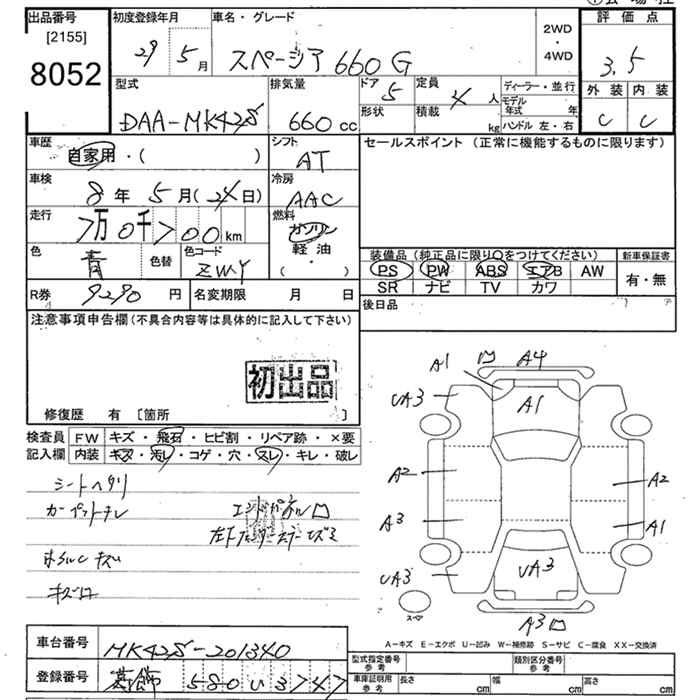 出品番号
[2155]
8052
初度登録年月
29 5月
車名・グレード
スペーシア 660 G
2WD
・
4WD
評価点
3.5
外装 内装
C C
型式
DAA-MK42S
排気量
660 cc
ドア 5
形状
定員 4 人
積載 kg
ディーラー・並行
モデル年式 年
ハンドル 左・右
車歴
自家用・( )
シフト
AT
セールスポイント (正常に機能するものに限ります)
車検
8年 5月(24日)
冷房
AAC
走行
7万 0千 700 km
燃料
ガソリン
軽油・
( )
色
青
色替
色コード
ZWY
装備品(純正品に限り○をつけてください)
PS PW ABS エアB AW
SR ナビ TV カワ
新車保証書
有・無
R券 9290 円
名変期限 月 日
後日品
注意事項申告欄(不具合内容等は具体的に記入して下さい)
初出品
修復歴 有 [箇所 ]
検査員
記入欄
FW キズ・飛石・ヒビ割・リペア跡・×要
内装 キズ・汚レ・コゲ・穴・スレ・キレ・破レ
シートヘタリ
カーペットヨレ
左
キズ
A1
A4
UA3
A1
A2
A2
A3
A1
UA3
UA3
A3
スペア
A-キズ E-エクボ U-凹み W-補修跡 S-サビ C-腐食 XX-交換済
車台番号
MK42S-201340
登録番号
葛飾 580 い 3747
型式指定番号
参考
類別区分番号
参考
車庫証明用
参考
長さ cm
幅 cm
高さ cm